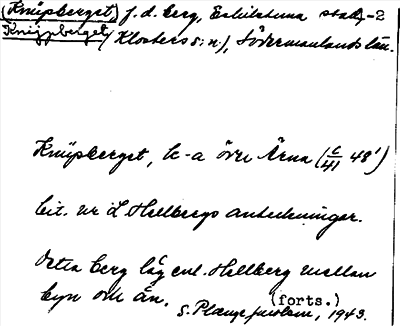 (Knüpberget) f.d. berg, Eskilstuna stad, -2
Knippberget (Klosters s:n), Södermanlands län.
Knüpberget, k-a övre Ärna (C/41 48')
cit. ur L Hellbergs anteckningar.
Detta berg låg enl. Hellberg mellan
byn och ån.
(forts.)
S. 1943.